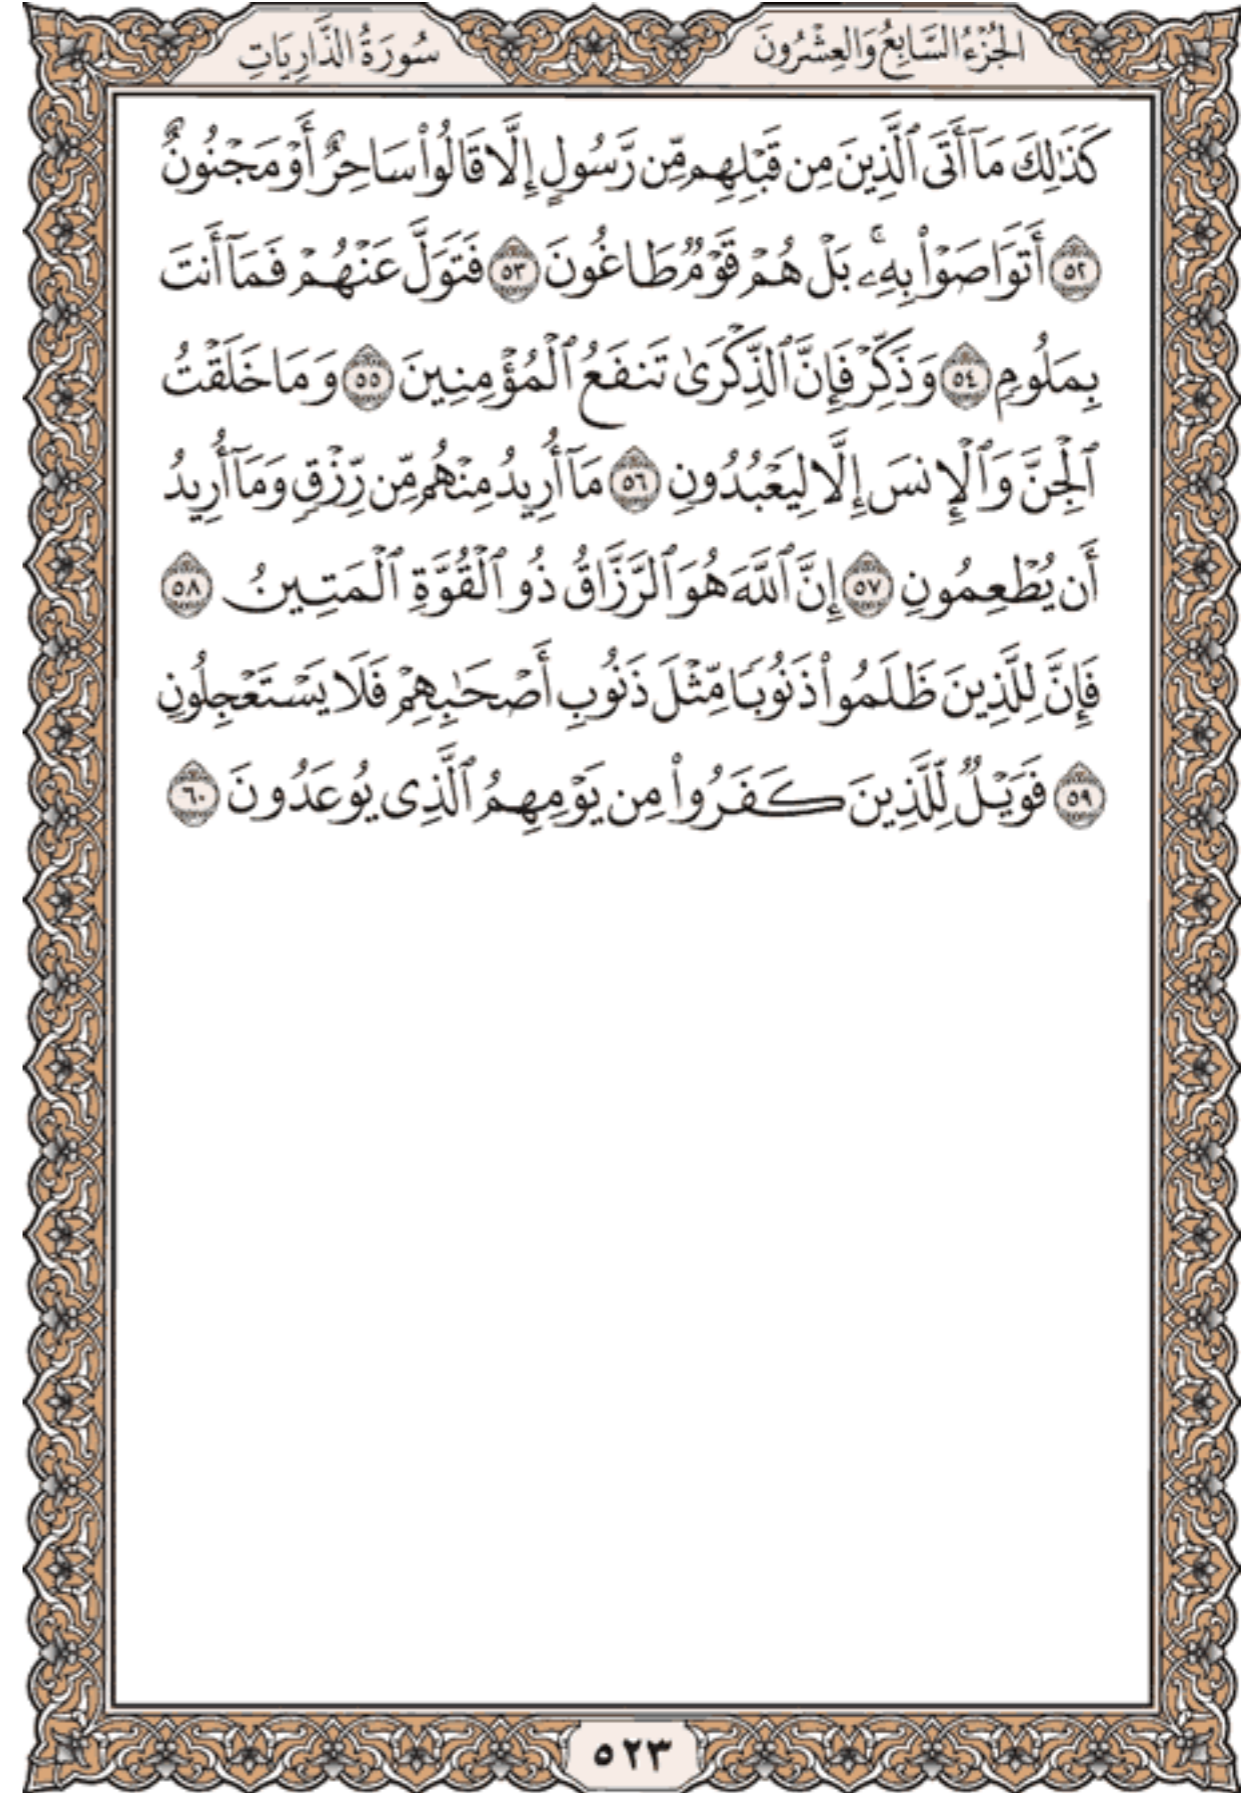 الجُزْءُ السَّابِعُ وَالعِشْرُونَ
سُورَةُ الذَّارِيَاتِ
كَذَٰلِكَ مَآ أَتَى ٱلَّذِينَ مِن قَبْلِهِم مِّن رَّسُولٍ إِلَّا قَالُوا۟ سَاحِرٌ أَوْ مَجْنُونٌ
٥٢ أَتَوَاصَوْا۟ بِهِۦ ۚ بَلْ هُمْ قَوْمٌ طَاغُونَ ٥٣ فَتَوَلَّ عَنْهُمْ فَمَآ أَنتَ
بِمَلُومٍ ٥٤ وَذَكِّرْ فَإِنَّ ٱلذِّكْرَىٰ تَنفَعُ ٱلْمُؤْمِنِينَ ٥٥ وَمَا خَلَقْتُ
ٱلْجِنَّ وَٱلْإِنسَ إِلَّا لِيَعْبُدُونِ ٥٦ مَآ أُرِيدُ مِنْهُم مِّن رِّزْقٍ وَمَآ أُرِيدُ
أَن يُطْعِمُونِ ٥٧ إِنَّ ٱللَّهَ هُوَ ٱلرَّزَّاقُ ذُو ٱلْقُوَّةِ ٱلْمَتِينُ ٥٨
فَإِنَّ لِلَّذِينَ ظَلَمُوا۟ ذَنُوبًا مِّثْلَ ذَنُوبِ أَصْحَٰبِهِمْ فَلَا يَسْتَعْجِلُونِ
٥٩ فَوَيْلٌ لِّلَّذِينَ كَفَرُوا۟ مِن يَوْمِهِمُ ٱلَّذِى يُوعَدُونَ ٦٠
٥٢٣